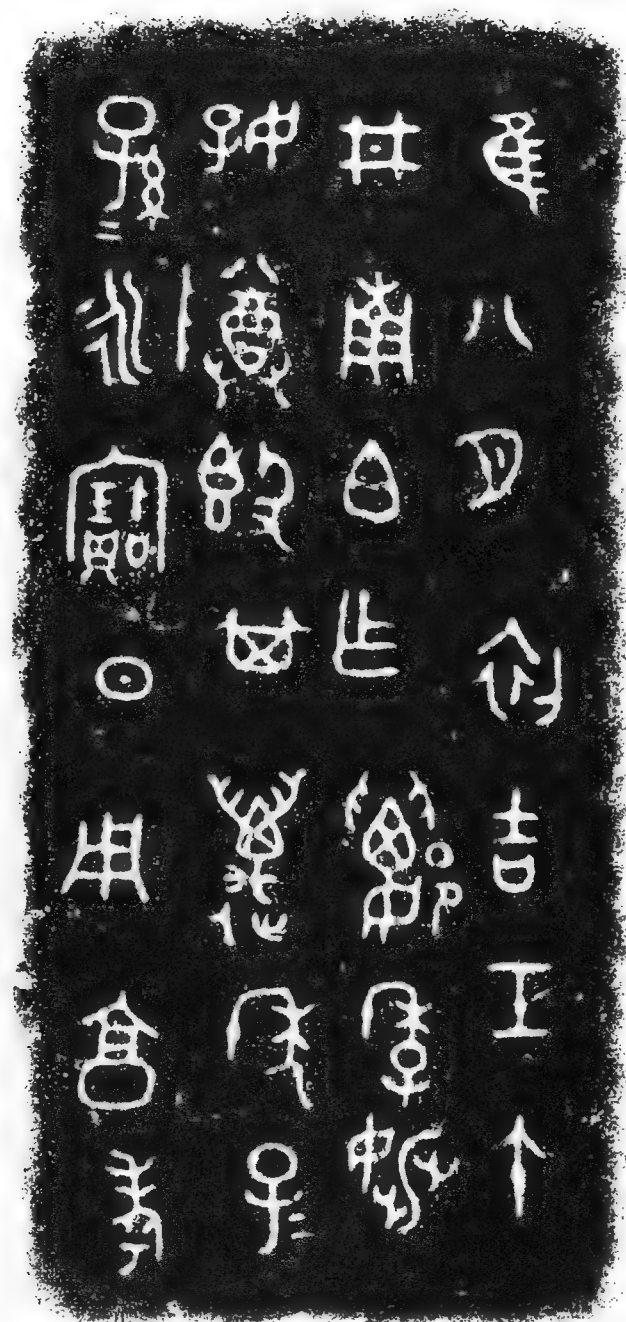 隹八月初吉壬午
井南白乍季姚
好尊簋其萬年子=
孫=永寶日用享考